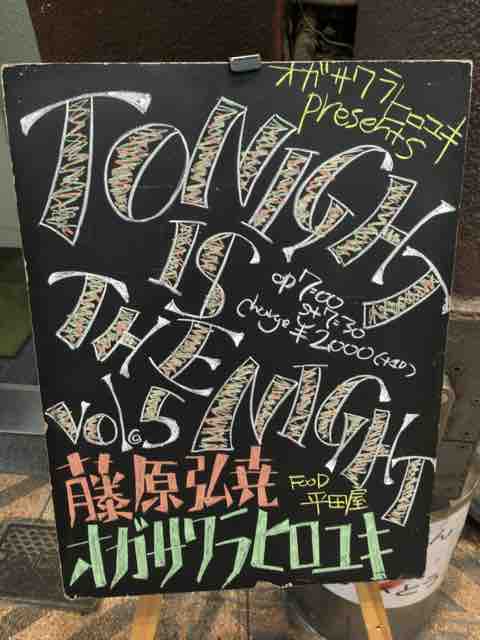 オガサワラヒロユキ
presents
TONIGHT
IS
THE NIGHT
op 7:00
st 7:30
charge ¥2,000 (+1D)
vol.5
藤原弘尭
FOOD
平田屋
オガサワラヒロユキ